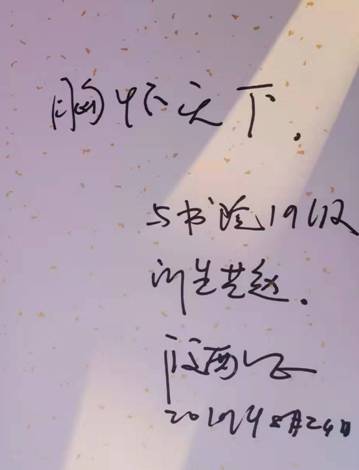 胸怀天下.
与书院19级
新生共勉.
2019年8月24日